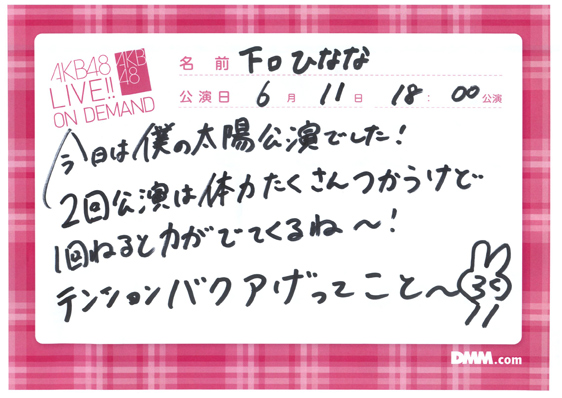 AKB48
LIVE!!
ON DEMAND
AKB
48
名前 下口ひなな
公演日 6月 11日 18:00公演
今日は僕の太陽公演でした！
2回公演は体力たくさんつかうけど
1回ねると力がでてくるね〜！
テンションバクアげってこと〜
DMM.com